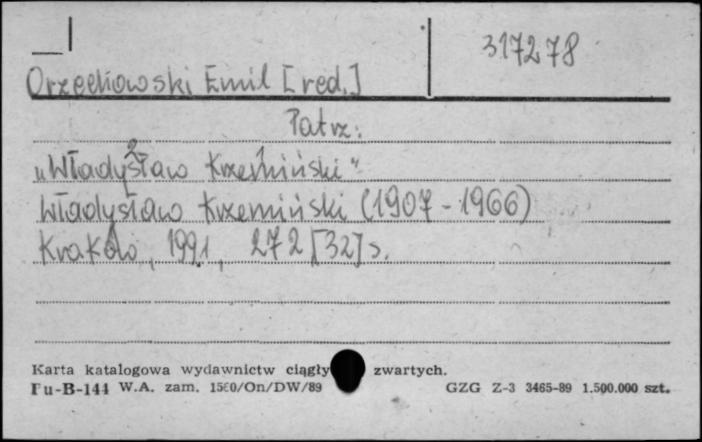 317278
Orzechowski Emil [red.]
Patrz:
"Władysław Krzemiński"
Władysław Krzemiński (1907-1966)
Kraków, 1991, 272 [32] s.
Karta katalogowa wydawnictw ciągły zwartych.
Pu-B-144 W.A. zam. 1560/On/DW/89 GZG Z-3 3465-89 1.500.000 szt.